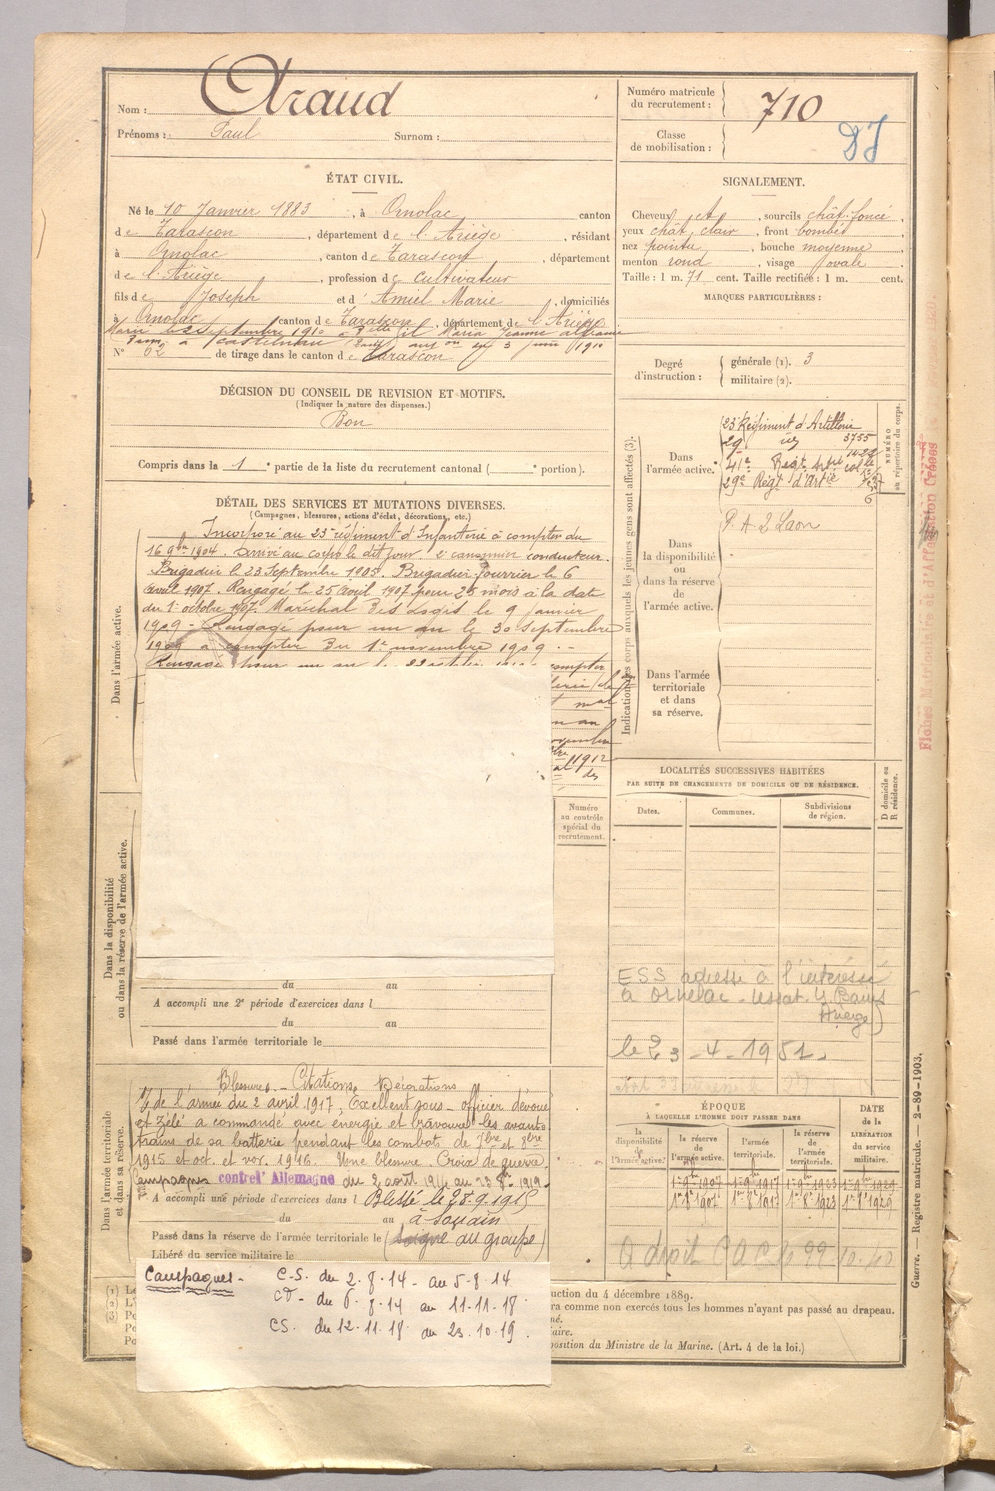 Nom : Araud
Prénoms : Paul Surnom :
Numéro matricule du recrutement : 710
Classe de mobilisation :
ÉTAT CIVIL.
Né le 10 Janvier 1883, à Ornolac canton
de Tarascon, département de l'Ariège, résidant
à Ornolac, canton de Tarascon, département
de l'Ariège, profession de Cultivateur
fils de Joseph et d Amiel Marie, domiciliés
à Ornolac canton de Tarascon, département de l'Ariège
Marié le 2 septembre 1910 à Maria Jeanne
à Castelnau 3 juin 1910
N° 62 de tirage dans le canton de Tarascon
SIGNALEMENT.
Cheveux cht, sourcils chât. foncé,
yeux chât. clair, front bombé
nez pointu, bouche moyenne
menton rond, visage ovale.
Taille : 1 m. 71 cent. Taille rectifiée : 1 m. cent.
MARQUES PARTICULIÈRES :
Degré d'instruction : générale (1). 3
militaire (2).
DÉCISION DU CONSEIL DE REVISION ET MOTIFS.
(Indiquer la nature des dispenses.)
Bon
Compris dans la 1e partie de la liste du recrutement cantonal ( e portion).
DÉTAIL DES SERVICES ET MUTATIONS DIVERSES.
(Campagnes, blessures, actions d'éclat, décorations, etc.)
Dans l'armée active.
Incorporé au 23e régiment d'Infanterie à compter du
16 9bre 1904. Arrivé au corps le dit jour. 2e canonnier conducteur.
Brigadier le 23 Septembre 1905. Brigadier Fourrier le 6
avril 1907. Rengagé le 25 avril 1907 pour 25 mois à la date
du 1er octobre 1907. Maréchal des Logis le 9 janvier
1909 - Rengagé pour un an le 30 septembre
1909 à compter du 1er novembre 1909.
Rengagé pour un an le compter
1912
des
Indication des corps auxquels les jeunes gens sont affectés (3).
NUMÉRO au répertoire du corps.
Dans l'armée active.
23e Régiment d'Artillerie
29 id 3755
41e Regt Artie col
29e Régt d'Artie
Dans la disponibilité ou dans la réserve de l'armée active.
P. A. 2 Laon
Dans l'armée territoriale et dans sa réserve.
LOCALITÉS SUCCESSIVES HABITÉES
PAR SUITE DE CHANGEMENTS DE DOMICILE OU DE RÉSIDENCE.
D domicile ou R résidence.
Dates. Communes. Subdivisions de région.
ESS adressé à l'intéressé
à Ornolac - Ussat les Bains
Ariège)
le 23 - 4 - 1951.
Numéro au contrôle spécial du recrutement.
Dans la disponibilité ou dans la réserve de l'armée active.
du au
A accompli une 2e période d'exercices dans l
du au
Passé dans l'armée territoriale le
Dans l'armée territoriale et dans sa réserve.
Blessure - Citations, Décorations
de l'armée du 2 avril 1917, Excellent sous-officier dévoué
et zélé a commandé avec énergie et bravoure les avants
trains de sa batterie pendant les combats de 7bre et 9bre
1915 et oct. et nov. 1916. Une blessure. Croix de guerre.
Campagne contre l'Allemagne du 2 août 1914 au 23 8bre 1919.
A accompli une période d'exercices dans l Blessé le 25.9.1915
du au à Souain
Passé dans la réserve de l'armée territoriale le (soigné au groupe)
Libéré du service militaire le
Campagnes - C.S. du 2.8.14 - au 5.8.14
CD - du 6.8.14 au 11.11.18
CS. du 12.11.18 au 23.10.19.
ÉPOQUE
À LAQUELLE L'HOMME DOIT PASSER DANS
la disponibilité de l'armée active.
la réserve de l'armée active.
l'armée territoriale.
la réserve de l'armée territoriale.
DATE de la LIBÉRATION du service militaire.
1er 8bre 1907 1er 8bre 1917 1er 8bre 1923 1er 8bre 1929
A droit
uction du 4 décembre 1889.
ra comme non exercés tous les hommes n'ayant pas passé au drapeau.
né.
taire.
position du Ministre de la Marine. (Art. 4 de la loi.)
Guerre. — Registre matricule. — 2-89-1903.
Fiches Matricules et d'Affectation Créées